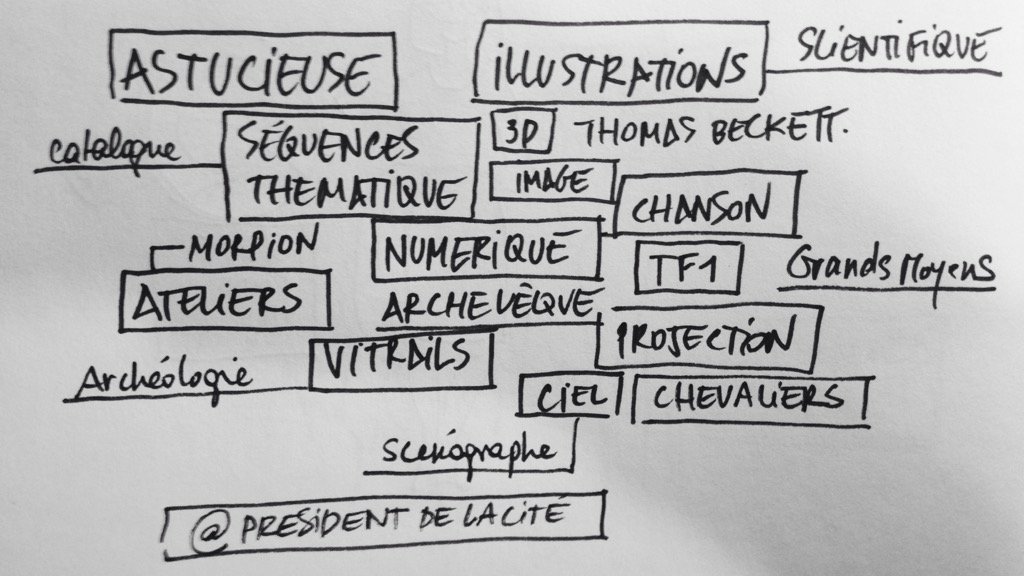 ASTUCIEUSE
ILLUSTRATIONS
SCIENTIFIQUE
catalogue
SÉQUENCES
THEMATIQUE
3D
THOMAS BECKETT.
IMAGE
CHANSON
MORPION
NUMERIQUE
TF1
Grands Moyens
ATELIERS
ARCHEVÊQUE
PROJECTION
VITRAILS
Archéologie
CIEL
CHEVALIERS
scénographe
@PRESIDENT DE LA CITÉ